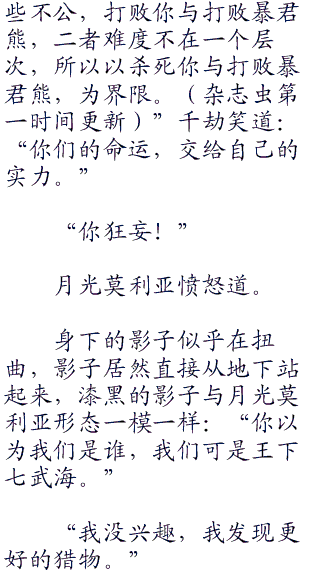 些不公，打败你与打败暴君
熊，二者难度不在一个层
次，所以以杀死你与打败暴
君熊，为界限。（杂志虫第
一时间更新）”千劫笑道：
“你们的命运，交给自己的
实力。”
“你狂妄！”
月光莫利亚愤怒道。
身下的影子似乎在扭
曲，影子居然直接从地下站
起来，漆黑的影子与月光莫
利亚形态一模一样：“你以
为我们是谁，我们可是王下
七武海。”
“我没兴趣，我发现更
好的猎物。”